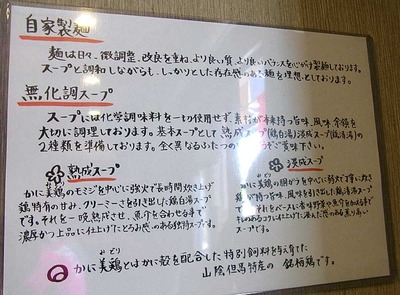 自家製麺
麺は日々、微調整、改良を重ね、より良い質、より良いバランスを心がけ製麺しております。
スープと調和しながらも、しっかりとした存在感のある麺を理想としております。
無化調スープ
スープには化学調味料を一切使用せず素材が本来持つ旨味、風味、余韻を
大切に調理しております。基本スープとして熟成スープ(鶏白湯)淡成スープ(鶏清湯)の
2種類を準備しております。全く異なるふたつの ご賞味下さい。
熟成スープ
かに美鶏のモミジを中心に強火で長時間炊き上げ
鶏特有の甘み、クリーミーさを引き出した鶏白湯スープ
です。それを一晩熟成させ、魚介を合わせる事で
濃厚かつ上品に仕上げたとろみ感のある独特スープです。
淡成スープ
かに美鶏の胴ガラを中心に弱火で丁寧に炊き
鶏が持つ旨味、風味を引き出した鶏清湯スープ
です。それをベースに香味野菜や魚介を加える事で
仕上げた澄んだ 香り高い
スープです。
みどり
かに美鶏とはかに殻を配合した特別飼料を与え育てた
山陰但馬特産の 銘柄鶏です。